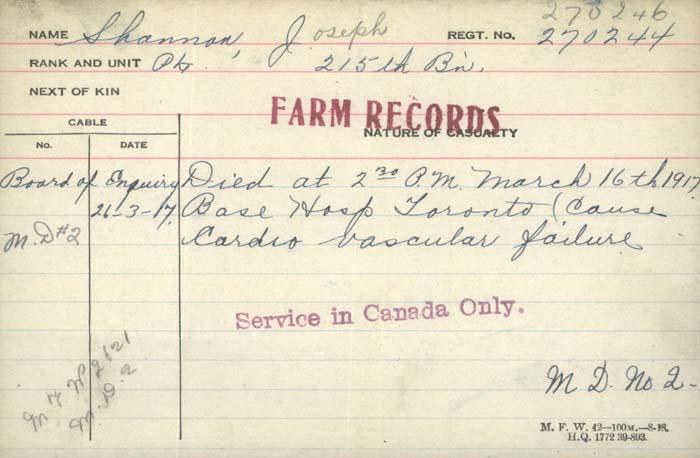 270246
NAME Shannon, Joseph REGT. No. 270244
RANK AND UNIT Pte 215th Bn.
NEXT OF KIN
FARM RECORDS
CABLE
NATURE OF CASUALTY
No. DATE
Board of Enquiry Died at 2 30 P.M. March 16th 1917
26-3-17. Base Hosp Toronto (Cause
M.D #2 Cardio vascular failure
Service in Canada Only.
M. D. No 2-
M. F. W. 2621
M. D. 2
M. F. W. 42—100M.—8-18.
H.Q. 1772 39-893.